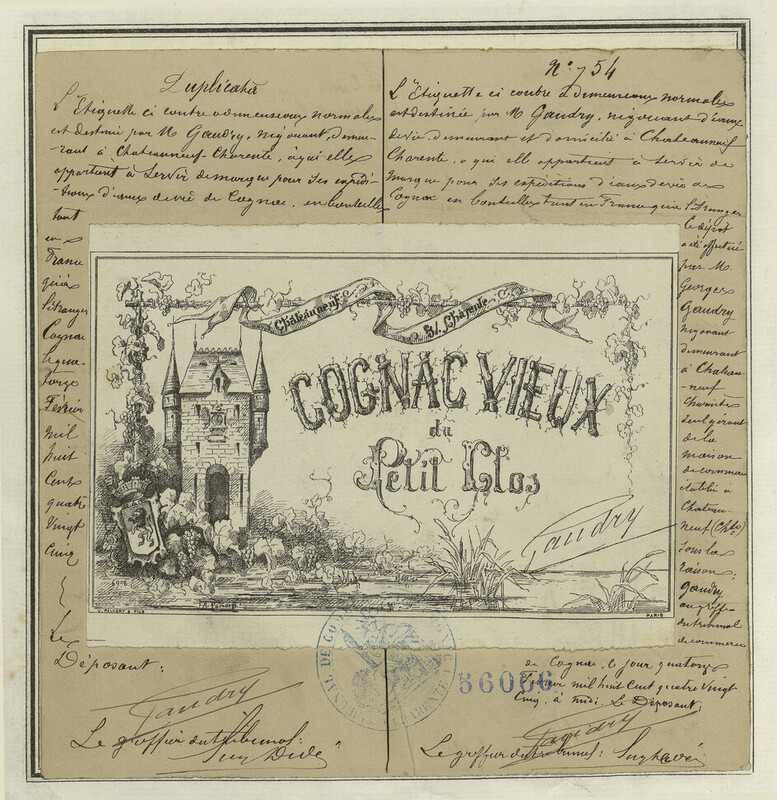 Duplicata
L'Etiquette ci contre a dimensions normales
est destinée par M Gaudry, négociant, demeu-
rant à Chateauneuf-Charente, à qui elle
appartient à servir de marque pour ses expédi-
tions d'eaux de vie de Cognac, en bouteilles
tant
en
France
qu'à
l'étranger
Cognac
le qua-
torze
Février
mil
huit
cent
quatre
vingt
cinq
Le
Déposant:
Gaudry
Le greffier du tribunal:
N° 754
L'Etiquette ci contre a dimensions normales
est destinée par M Gaudry, négociant d'eaux
de vie, demeurant et domicilié à Chateauneuf
Charente, a qui elle appartient à servir de
marque pour ses expéditions d'eaux de vie de
Cognac en bouteilles tant en France qu'à l'étranger
Le dépôt
a été effectué
par M.
Georges
Gaudry
négociant
demeurant
à Chateau-
-neuf
Charente
seul gérant
de la
maison
de commerce
établie à
Chateau-
neuf (Chte)
sous la
raison
Gaudry
au greffe
du tribunal
de commerce
de Cognac, le jour quatorze
Février mil huit cent quatre vingt
cinq, à midi. Le Déposant:
Gaudry
Le greffier du tribunal:
Châteauneuf
S/. Charente
COGNAC VIEUX
du
Petit Clos
Gaudry
6918
PARIS
TRIBUNAL DE COMMERCE
CHARENTE
56066